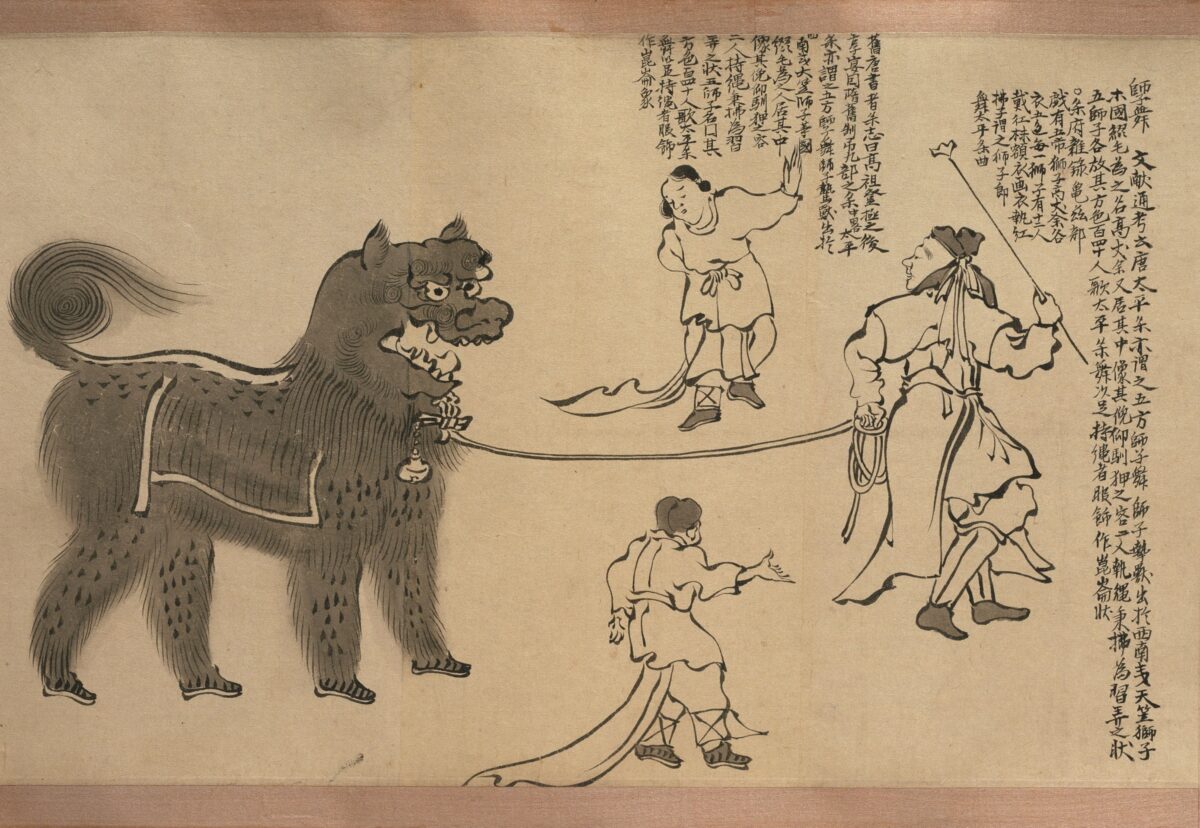 師舞 文献通考云唐太平楽亦謂之五方師子舞 師子摯獣出於西南夷天竺獅子
木國綴毛為之名高丈余又居其中像其俛仰馴狎之容二人執縄秉拂為習弄之状
五師子各放其方色百四十人歌太平楽舞以足持縄者服飾作崑崙状
〇楽府雑録亀茲部
戯有五常獅子高丈余各
衣五色毎一獅子有十二人
戴紅抹額衣画衣執紅
拂子謂之師子郎
舞太平楽曲
舊唐書音楽志曰高祖登極之後
享宴因隋舊制用九部之楽中略太平
楽亦謂之五方師子舞師子摯獣出於
南夷天竺師子等國
綴毛為之人居其中
像其俛仰馴狎之容
二人持縄秉拂為習
弄之状五師子各囗其
方色百四十人歌太平楽
舞以足持縄者服飾
作崑崙象